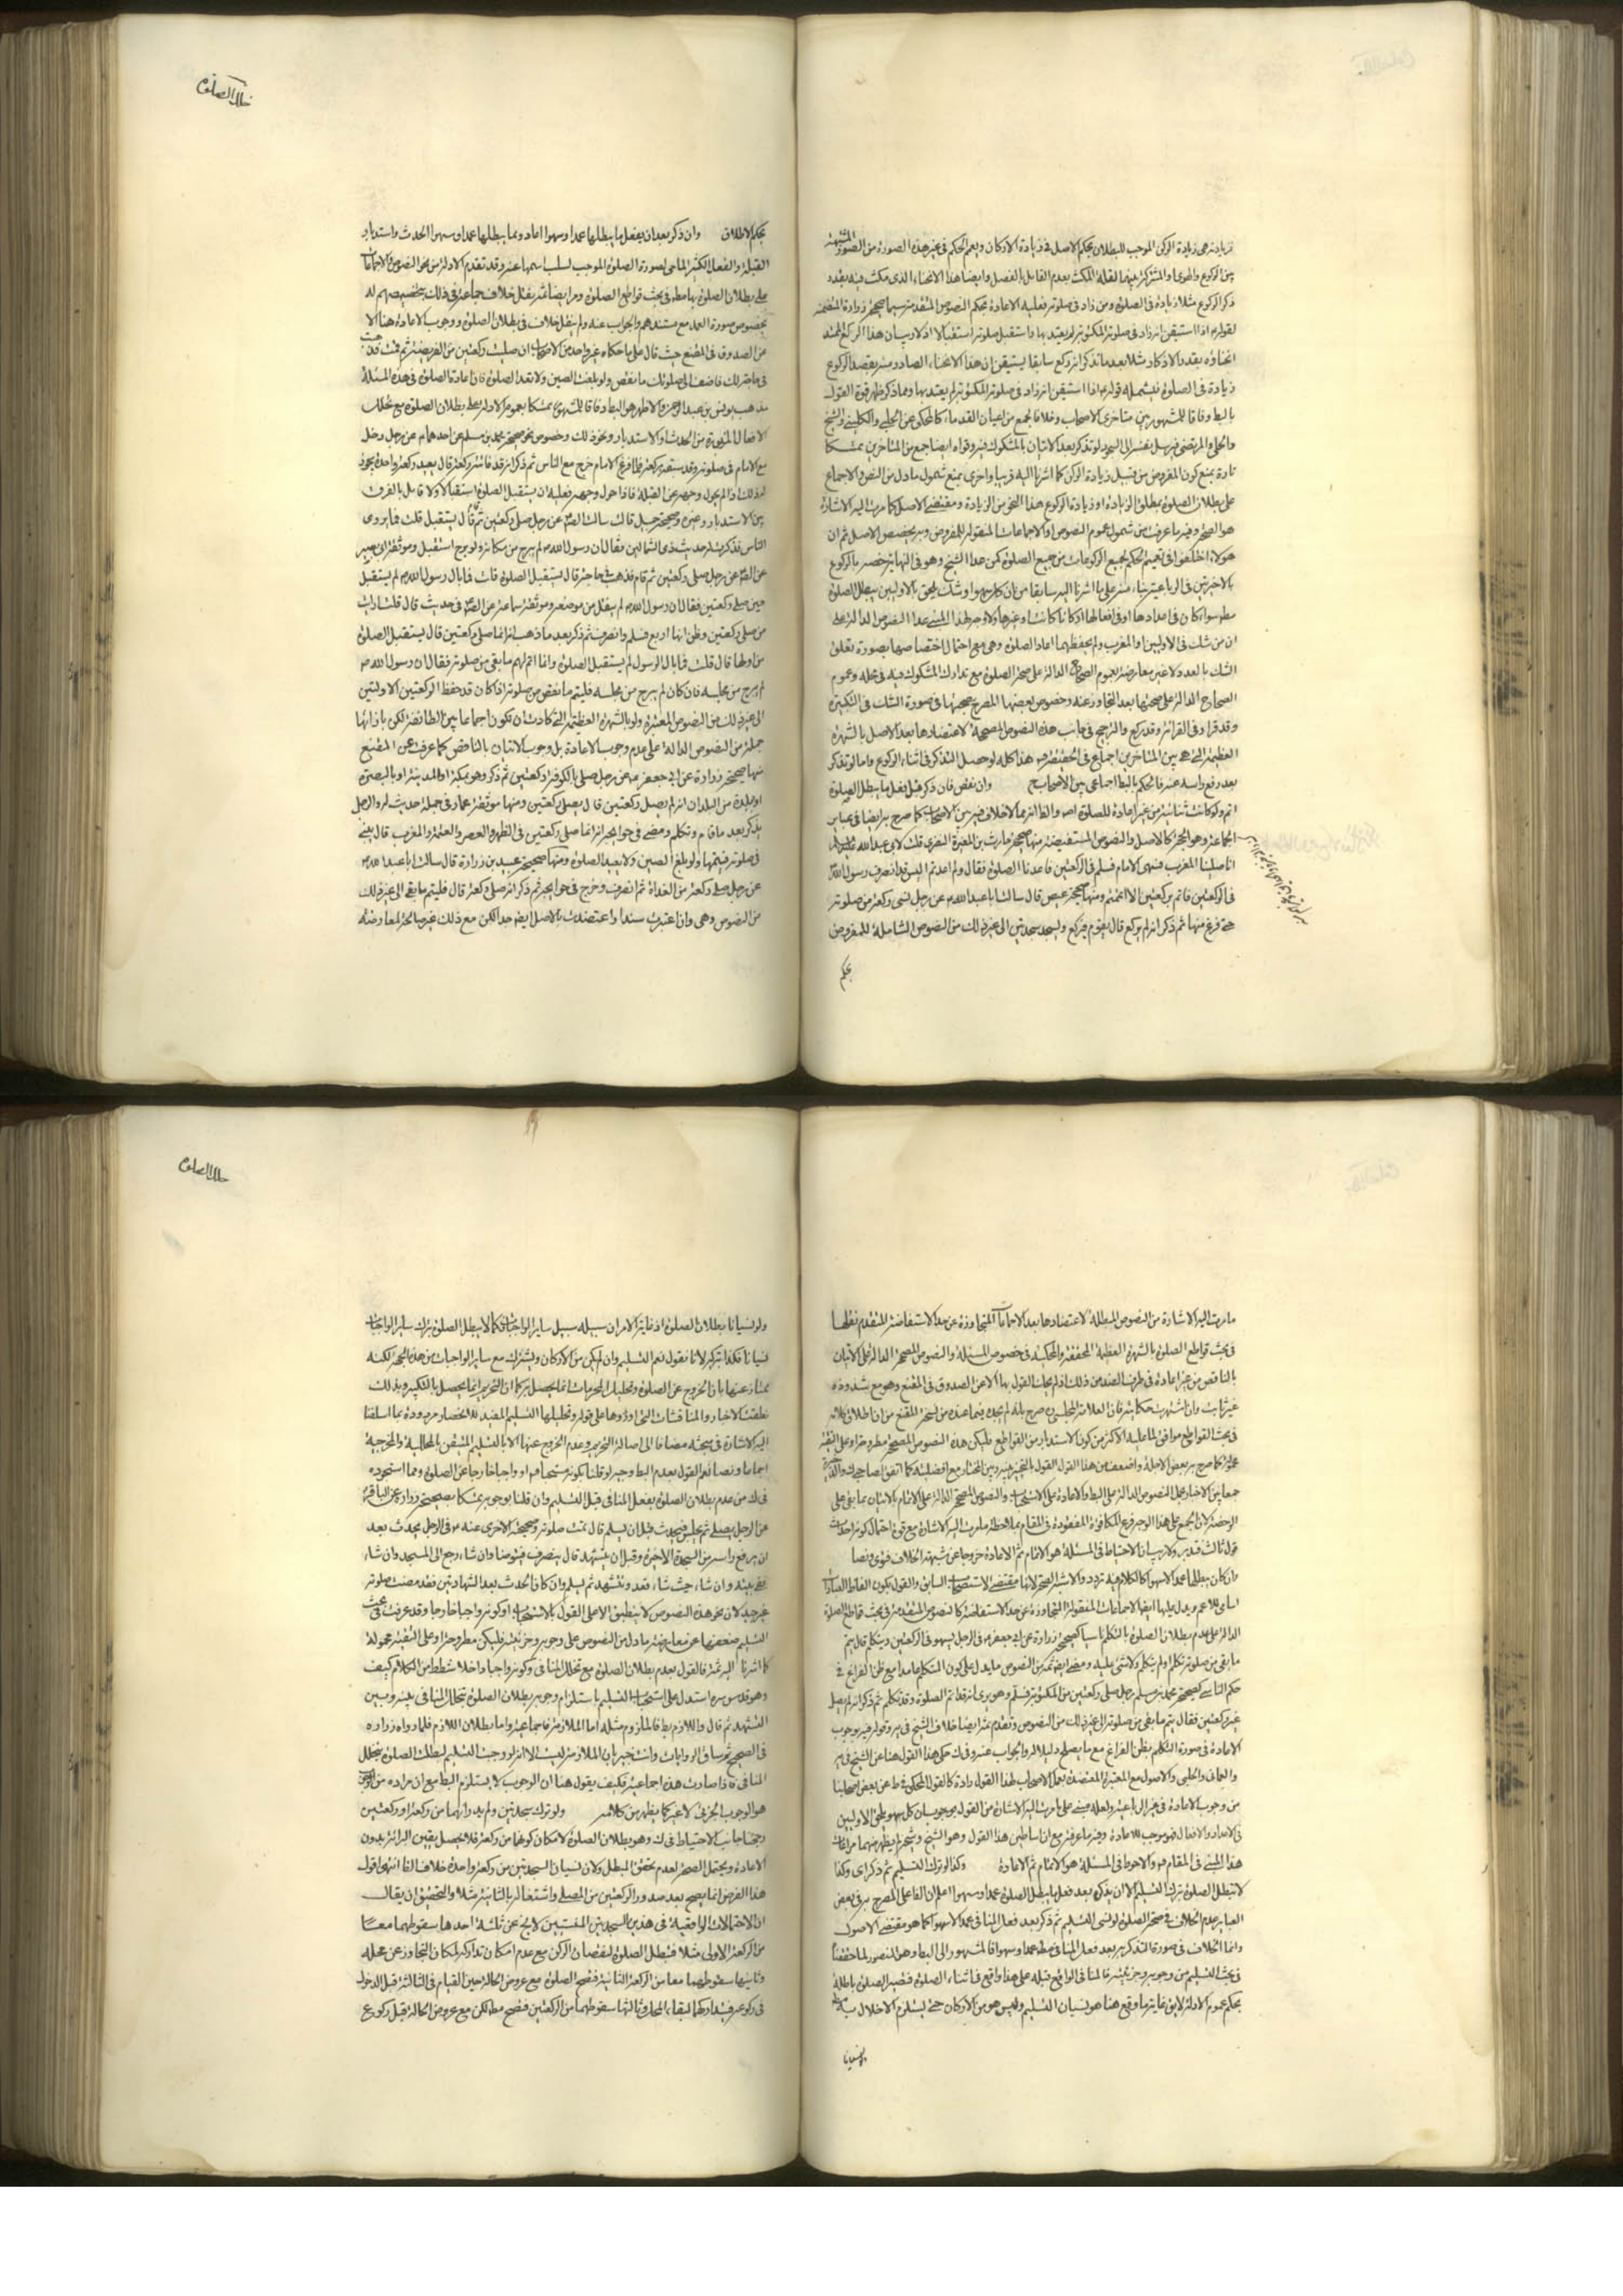 خلل الصلوة
زيادته هي زيادة الركن الموجب للبطلان بحكم الاصل في زيادة الاركان ويعم الحكم في غير هذه الصورة من الصور المشتبهة
بين الركوع والهوى والمشتركة بينهما لقلة المكث بعدم القايل بالفصل وايضا هذا الانحناء الذي مكث فيه بقدر
ذكر الركوع مثلا زيادة في الصلوة ومن زاد في صلوته فعليه الاعادة بحكم النصوص المتقدمة سيما صحيحة زرارة المتضمنة
لقوله اذا استيقن انه زاد في صلوته المكتوبة لم يعتد بها واستقبل صلوته استقبالا اذ لا ريب ان هذا الراكع الممتد
انحناؤه بقدر الاذكار مثلا بعد ما تذكر انه ركع سابقا يستيقن ان هذا الانحناء الصادر منه بقصد الركوع
زيادة في الصلوة فيشمله قوله اذا استيقن انه زاد في صلوته المكتوبة لم يعتد بها ومما ذكر ظهر قوة القول
بالبط وفاقا للمشهور بين متاخري الاصحاب وخلافا لجمع من اعيان القدماء كالمحكي عن الحلبي والكليني والشيخ
والحلي والمرتضى فيرسل نفسه الى السجود لو تذكر بعد الاتيان بالمشكوك فيه وقواه ايضا جمع من المتاخرين تمسكا
تارة بمنع كون المفروض من قبيل زيادة الركن كما اشرنا اليه قريبا واخرى بمنع شمول ما دل من النص والاجماع
على بطلان الصلوة بمطلق الزيادة او زيادة الركوع هذا النحو من الزيادة ومقتضى الاصل كما مرت اليه الاشارة
هو الصحة وفيه ما عرفت من شمول عموم النصوص والاجماعات المنقولة للمفروض وبه يخصص الاصل ثم ان
هؤلاء اختلفوا في تعميم الحكم لجميع الركوعات من جميع الصلوة فمن عدا الشيخ وهو في النهاية خصه بالركوع
بالاخيرتين في الرباعية بناء منه على ما اشرنا اليه سابقا من ان كل سهو او شك يلحق بالاوليين يبطل الصلوة
مط سواء كان في اعدادها او في افعالها اركانا كانت او غيرها
ان من شك في الاوليين او المغرب ولم يحفظهما اعاد الصلوة وهي مع احتمال اختصاصها بصورة تعلق
الشك بالعدد لا غير معارضة بعموم الصحاح الدالة على صحة الصلوة مع تدارك المشكوك فيه في محله وعموم
الصحاح الدالة على صحتها بعد التجاوز عنه وخصوص بعضها المصرح بصحتها في صورة الشك في التكبيرة
وقد قرا وفي القراءة وقد ركع والترجيح في جانب هذه النصوص المصححة لاعتضادها بعد الاصل بالشهرة
العظيمة التي هي بين المتاخرين اجماع في الحقيقة هذا كله لو حصل التذكر في اثناء الركوع واما لو تذكر
بعد رفع راسه عنه فالحكم بالبط اجماعي بين الاصحاب وان نقص فان ذكر قبل فعل ما يبطل الصلوة
اتم ولو كانت ثنائية من غير اعادة للصلوة والظاهر انه مما لا خلاف فيه بين الاصحاب كما صرح به ايضا في عباير
الجماعة وهو الحجة كالاصل والنصوص المستفيضة منها صحيحة حارث بن المغيرة النصري قلت لابي عبد الله
انا صلينا المغرب فسهى الامام فسلم في الركعتين فاعدنا الصلوة فقال ولم اعدتم اليس قد انصرف رسول الله
في الركعتين فاتم بركعتين الا اتممتم ومنها صحيحة عيص قال سالت ابا عبد الله عن رجل نسي ركعة من صلوته
حتى فرغ منها ثم ذكر انه لم يركع قال يقوم فيركع ويسجد سجدتين الى غير ذلك من النصوص الشاملة للمفروض
بحكم
بحكم الاطلاق وان ذكر بعد ان يفعل ما يبطلها عمدا وسهوا اعاد ومما يبطلها عمدا وسهوا الحدث واستدبار
القبلة والفعل الكثير الماحي لصورة الصلوة الموجب لسلب اسمها عنه وقد تقدم الادلة من نحو النصوص والاجماعات
على بطلان الصلوة بها مط في بحث قواطع الصلوة ومر ايضا ثمة نقل خلاف جماعة في ذلك بتخصيصهم له
بخصوص صورة العمد مع مستندهم والجواب عنه ولم ينقل خلاف في بطلان الصلوة ووجوب الاعادة هنا الا
عن الصدوق في المقنع حيث قال على ما حكاه غير واحد من الاصحاب ان صليت ركعتين من الفريضة ثم قمت فذهبت
في حاجة لك فاضف الى صلوتك ما نقص ولو بلغت الصين ولا تعد الصلوة فان اعادة الصلوة في هذه المسئلة
مذهب يونس بن عبد الرحمن والاظهر هو البط وفاقا للمشهور تمسكا بعموم الادلة على بطلان الصلوة مع تخلل
الافعال المذكورة من الحدث او الاستدبار ونحو ذلك وخصوص نحو صحيحة محمد بن مسلم عن احدهما عن رجل دخل
مع الامام في صلوته وقد سبقه بركعة فلما فرغ الامام خرج مع الناس ثم ذكر انه قد فاتته ركعة قال يعيد ركعة واحدة يجوز
له ذلك اذا لم يحول وجهه عن القبلة فاذا حول وجهه فعليه ان يستقبل الصلوة استقبالا ولا قايل بالفرق
بين الاستدبار وغيره وصحيحة جميل قال سالت الصادق عن رجل صلى ركعتين ثم قام قال يستقبل قلت فما يروى
الناس فذكر له حديث ذي الشمالين فقال ان رسول الله لم يبرح من مكانه ولو برح استقبل وموثقة ابي بصير
عن الصادق عن رجل صلى ركعتين ثم قام فذهب في حاجته قال يستقبل الصلوة قلت فما بال رسول الله لم يستقبل
حين صلى ركعتين فقال ان رسول الله لم ينفتل من موضعه وموثقة سماعة عن الصادق في حديث قال قلت ارايت
من صلى ركعتين وظن انها اربع فسلم وانصرف ثم ذكر بعد ما ذهب انه انما صلى ركعتين قال يستقبل الصلوة
من اولها قال قلت فما بال الرسول لم يستقبل الصلوة وانما اتم لهم ما بقي من صلوته فقال ان رسول الله
لم يبرح من مجلسه فان كان لم يبرح من مجلسه فليتم ما نقص من صلوته اذا كان قد حفظ الركعتين الاوليين
الى غير ذلك من النصوص المعتبرة ولو بالشهرة العظيمة التي كادت ان تكون اجماعا بين الطائفة لكن بازائها
جملة من النصوص الدالة على عدم وجوب الاعادة بل وجوب الاتيان بالناقص كما عرفت عن المقنع
منها صحيحة زرارة عن ابي جعفر عن رجل صلى بالكوفة ركعتين ثم ذكر وهو بمكة او المدينة او بالبصرة
او ببلدة من البلدان انه لم يصل ركعتين قال يصلي ركعتين ومنها موثقة عمار في جملة حديث له والرجل
يذكر بعد ما قام وتكلم ومضى في حوايجه انه انما صلى ركعتين في الظهر والعصر والعتمة والمغرب قال يبني
على صلوته فيتمها ولو بلغ الصين ولا يعيد الصلوة ومنها صحيحة عبيد بن زرارة قال سالت ابا عبد الله
عن رجل صلى ركعة من الغداة ثم انصرف وخرج في حوايجه ثم ذكر انه صلى ركعة قال فليتم ما بقي الى غير ذلك
من النصوص وهي وان اعتبرت سندا واعتضدت بالاصل ايضا جدا لكن مع ذلك غير صالحة لمعارضة
خلل الصلوة
ما مرت اليه الاشارة من النصوص المبطلة لاعتضادها بعد الاجماعات المتجاوزة عن حد الاستفاضة المتقدم نقلها
في بحث قواطع الصلوة بالشهرة العظيمة المحققة والمحكية في خصوص المسئلة والنصوص المصححة الدالة على الاتيان
بالناقص من غير اعادة في طرف الضد من ذلك اذ لم يحك القول بها الا عن الصدوق في المقنع وهو مع شذوذه
غير ثابت وان اشتهرت حكايته فان العلامة المجلسي صرح بانه لم يجده فيما عنده من نسخ المقنع مع ان اطلاق كلامه
في بحث القواطع موافق لما عليه الاكثر من كون الاستدبار من القواطع فليكن هذه النصوص المصححة مطروحة او على التقية
محمولة كما صرح به بعض الاجلة واضعف من هذا القول القول بالتخيير بينه وبين المختار مع افضليته كما اتفق لصاحبي ك والذخيرة
جمعا بين الاخبار بحمل النصوص الدالة على البط والاعادة على الاستحباب والنصوص المصححة الدالة على الاتمام بالاتيان بما بقي على
الرخصة لان الجمع على هذا الوجه فرع المكافاة المفقودة في المقام بملاحظة ما مرت اليه الاشارة مع قوة احتمال كونه احداث
قول ثالث فتدبر ولا ريب ان الاحتياط في المسئلة هو الاتمام ثم الاعادة خروجا عن شبهة الخلاف فتوى ونصا
وان كان يبطلها عمدا لا سهوا كالكلام فيه تردد والاشبه الصحة لانها مقتضى الاستصحاب السابق والقول بكون الفاظ العبادات
اسامي للاعم ويدل عليها ايضا الاجماعات المنقولة المتجاوزة عن حد الاستفاضة كالنصوص المتقدمة في بحث قواطع الصلوة
الدالة على عدم بطلان الصلوة بالتكلم ناسيا كصحيحة زرارة عن ابي جعفر في الرجل يسهو في الركعتين ويتكلم قال يتم
ما بقي من صلوته تكلم او لم يتكلم ولا شئ عليه ومضى ايضا ثمة من النصوص ما يدل على كون التكلم عامدا مع ظن الفراغ في
حكم الناسي كصحيحة محمد بن مسلم رجل صلى ركعتين من المكتوبة فسلم وهو يرى انه قد اتم الصلوة وقد تكلم ثم ذكر انه لم يصل
غير ركعتين فقال يتم ما بقي من صلوته الى غير ذلك من النصوص وتقدم ثمة ايضا خلاف الشيخ في يه وقوله فيه بوجوب
الاعادة في صورة التكلم بظن الفراغ مع ما يصلح دليلا له والجواب عنه وفي ك حكى هذا القول هنا عن الشيخ في يه
والعماني والحلبي والاصول مع المعتبرة المعتضدة بعمل الاصحاب لهذا القول رادة كالقول المحكي في ط عن بعض اصحابنا
من وجوب الاعادة في غير الرباعية ولعله مبني على ما مرت اليه الاشارة من القول بوجوب ان كل سهو يلحق الاوليين
في الاعداد والافعال فهو موجب للاعادة وفيه ما عرفته مع ان اساطين هذا القول وهو الشيخ وشيخه لم يظهر منهما مراعاة
هذا المبنى في المقام والاحوط في المسئلة هو الاتمام ثم الاعادة وكذا لو ترك التسليم ثم ذكر اي وكذا
لا تبطل الصلوة بترك التسليم الا ان يذكره بعد فعل ما يبطل الصلوة عمدا وسهوا اعلم ان الفاعل المصرح به في بعض
العباير عدم الخلاف في صحة الصلوة لو نسي التسليم ثم ذكر بعد فعل المنافي عمدا لا سهوا كما هو مقتضى الاصول
وانما الخلاف في صورة التذكر به بعد فعل المنافي مط عمدا وسهوا فالمشهور الى البط وهو المنصور لما حققنا
في بحث التسليم من وجوبه وجزئيته فالمنافي الواقع قبله على هذا واقع في اثناء الصلوة فتصير الصلوة باطلة
بحكم عموم الادلة لا يق غاية ما وقع هنا هو نسيان التسليم وليس هو من الاركان حتى يستلزم الاخلال به
ولو نسيانا بطلان الصلوة اذ غاية الامر ان سبيله سبيل ساير الواجبات فكما لا يبطل الصلوة بترك ساير الواجبات
نسيانا فكذا بتركه لانا نقول نعم التسليم وان لم يكن من الاركان ويشترك مع ساير الواجبات من هذه الجهة لكنه
يمتاز عنها بان الخروج عن الصلوة وتحليل المحرمات انما يحصل به كما ان التحريم انما يحصل بالتكبير وبذلك
نطقت الاخبار والمناقشات التي اوردوها على قوله وتحليلها التسليم المفيد للانحصار مردودة بما اسلفنا
اليه الاشارة في بحثه مضافا الى اصالة التحريم وعدم الخروج عنها الا بالتسليم المتيقن بالمحللية والمخرجية
اجماعا ونصا نعم القول بعدم البط وجيه لو قلنا بكونه مستحبا او واجبا خارجا عن الصلوة ومما استجوده
في ك من عدم بطلان الصلوة بفعل المنافي قبل التسليم وان قلنا بوجوبه تمسكا بصحيحة زرارة عن الباقر
عن الرجل يصلي ثم يجلس فيحدث قبل ان يسلم قال تمت صلوته وصحيحته الاخرى عنه في الرجل يحدث بعد
ان يرفع راسه من السجدة الاخيرة وقبل ان يتشهد قال ينصرف فيتوضا وان شاء رجع الى المسجد وان شاء
ففي بيته وان شاء حيث شاء قعد ويتشهد ثم يسلم وان كان الحدث بعد الشهادتين فقد مضت صلوته
غير جيد لان نحو هذه النصوص لا ينطبق الا على القول بالاستحباب او كونه واجبا خارجا وقد عرفت في بحث
التسليم ضعفها عن معارضة ما دل من النصوص على وجوبه وجزئيته فليكن مطروحة او على التقية محمولة
كما اشرنا اليه ثمة فالقول بعدم بطلان الصلوة مع تخلل المنافي وكونه واجبا داخلا شطط من الكلام كيف
وهو قدس سره استدل على استحباب التسليم باستلزام وجوبه بطلان الصلوة بتخلل المنافي بينه وبين
التشهد ثم قال واللازم بط فالملزوم مثله اما الملازمة فاجماعية واما بطلان اللازم فلما رواه زرارة
في الصحيح ثم ساق الروايات وانت خبير بان الملازمة ليست الا انه لو وجب التسليم لبطلت الصلوة بتخلل
المنافي فاذا صارت هذه اجماعية فكيف يقول هنا ان الوجوب لا يستلزم البط مع ان مراده من الوجوب
هو الوجوب الجزئي لا غير كما يظهر من كلامه ولو ترك سجدتين ولم يدر انهما من ركعة او ركعتين
رجحنا جانب الاحتياط في ك وهو بطلان الصلوة لامكان كونهما من ركعة فلا يحصل يقين البرائة بدون
الاعادة ويحتمل الصحة لعدم تحقق المبطل ولان نسيان السجدتين من ركعة واحدة خلاف الظاهر انتهى اقول
هذا الفرض انما يصح بعد صدور الركعتين من المصلي واشتغاله بالثالثة مثلا والتحقيق ان يقال
ان الاحتمالات الواقعية في هذين السجدتين المنسيتين لا يخ عن ثلثة احدها سقوطهما معا
من الركعة الاولى مثلا فتبطل الصلوة لنقصان الركن مع عدم امكان تداركه لمكان التجاوز عن محله
وثانيها سقوطهما معا من الركعة الثانية فتصح الصلوة مع عروض الحالة حين القيام في الثالثة قبل الدخول
في ركوعه فيتداركهما لبقاء المحل وثالثها سقوطهما من الركعتين فتصح مط لكن مع عروض الحالة قبل ركوع